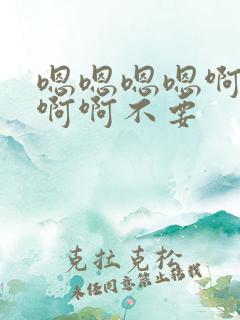 嗯嗯嗯嗯啊
啊啊不要
克拉克松
未经同意禁止转载